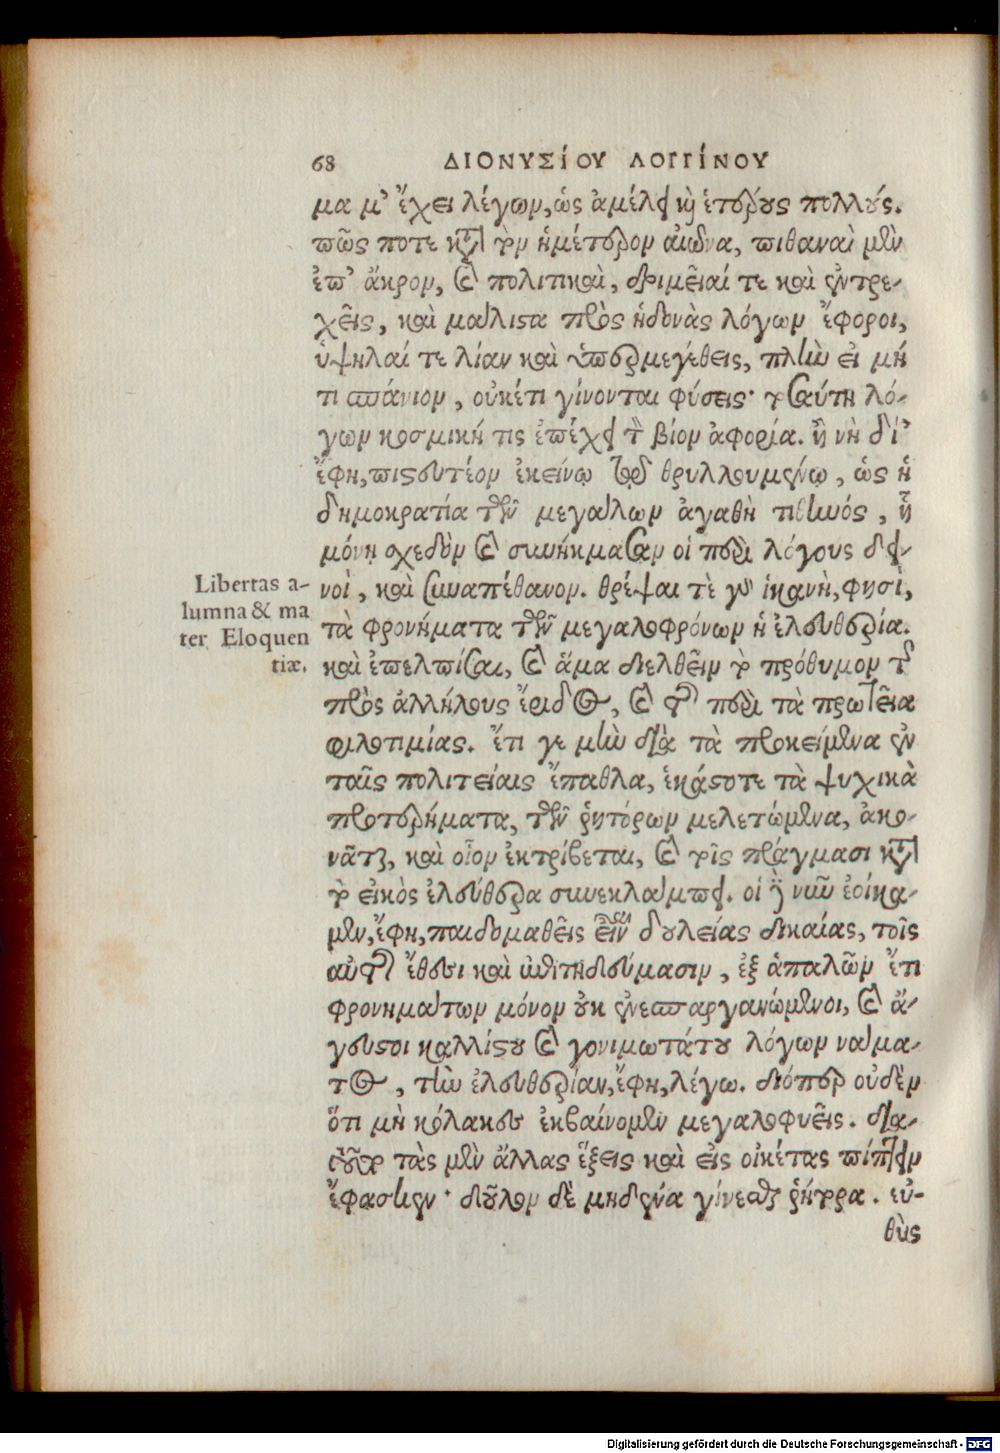 68 ΔΙΟΝΥΣΊΟΥ ΛΟΓΓΊΝΟΥ
μα μ' ἔχει λέγων, ὡς ἀμέλει καὶ ἑτέρους πολλούς.
πῶς ποτε κατὰ τὸν ἡμέτερον αἰῶνα, πιθαναὶ μὲν
ἐπ' ἄκρον, καὶ πολιτικαὶ, δριμεῖαί τε καὶ ἐντρε-
χεῖς, καὶ μάλιστα πρὸς ἡδονὰς λόγων ἔφοροι,
ὑψηλαί τε λίαν καὶ ὑπερμεγέθεις, πλὴν εἰ μή
τι σπάνιον, οὐκέτι γίνονται φύσεις· τοσαύτη λό-
γων κοσμική τις ἐπέχει τὸν βίον ἀφορία. ἢ νὴ δί'
ἔφη, πιστευτέον ἐκείνῳ τῷ θρυλλουμένῳ, ὡς ἡ
δημοκρατία τῶν μεγάλων ἀγαθὴ τιθηνός, ᾗ
μόνῃ σχεδὸν καὶ συνήκμασαν οἱ περὶ λόγους δει-
νοὶ, καὶ συναπέθανον. θρέψαι τὲ γὰρ ἱκανὴ, φησὶ,
τὰ φρονήματα τῶν μεγαλοφρόνων ἡ ἐλευθερία.
καὶ ἐπελπίσαι, καὶ ἅμα διελθεῖν τὸ πρόθυμον τῆς
πρὸς ἀλλήλους ἔριδος, καὶ τῆς περὶ τὰ πρωτεῖα
φιλοτιμίας. ἔτι γε μὴν διὰ τὰ προκείμενα ἐν
ταῖς πολιτείαις ἔπαθλα, ἑκάστοτε τὰ ψυχικὰ
προτερήματα, τῶν ῥητόρων μελετώμενα, ἀκο-
νᾶται, καὶ οἷον ἐκτρίβεται, καὶ τοῖς πράγμασι κατὰ
τὸ εἰκὸς ἐλεύθερα συνεκλάμπει. οἱ δὲ νῦν ἐοίκα-
μεν, ἔφη, παιδομαθεῖς εἶναι δουλείας δικαίας, τοῖς
αὐτῆς ἔθεσι καὶ ἐπιτηδεύμασιν, ἐξ ἁπαλῶν ἔτι
φρονημάτων μόνον οὐκ ἐνεσπαργανώμενοι, καὶ ἄ-
γευστοι καλλίστου καὶ γονιμωτάτου λόγων νάμα-
τος, τὴν ἐλευθερίαν, ἔφη, λέγω. διόπερ οὐδὲν
ὅτι μὴ κόλακες ἐκβαίνομεν μεγαλοφυεῖς. διὰ
τοῦτο τὰς μὲν ἄλλας ἕξεις καὶ εἰς οἰκέτας πίπτειν
ἔφασκεν· δοῦλον δὲ μηδένα γίνεσθαι ῥήτορα. εὐ-
θὺς
Libertas a-
lumna & ma
ter Eloquen
tiæ.
Digitalisierung gefördert durch die Deutsche Forschungsgemeinschaft - DFG